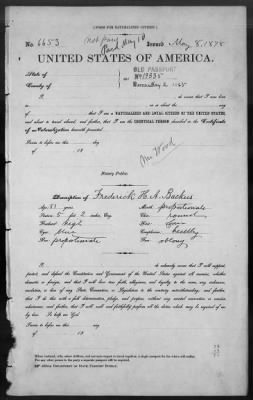 [FORM FOR NATURALIZED CITIZEN.]
No 6653 not pass Issued May 8, 1878
UNITED STATES OF AMERICA.
State of OLD PASSPORT
County of No
I, do swear that I was born
in on or about the day
of ; that I am a NATURALIZED AND LOYAL CITIZEN OF THE UNITED STATES,
and about to travel abroad; and further, that I am the IDENTICAL PERSON described in the Certificate
of Naturalization herewith presented.
Sworn to before me this day
of 18
Mr Wood
Notary Public.
Description of Frederick H. A. Backus
Age: 33 years Mouth: proportionate
Stature: 5 feet 2 inches, Eng. Chin: round
Forehead: high Hair:
Eyes: blue Complexion: healthy
Nose: proportionate Face: oblong
I, do solemnly swear that I will support,
protect, and defend the Constitution and Government of the United States against all enemies, whether
domestic or foreign, and that I will bear true faith, allegiance, and loyalty to the same, any ordinance,
resolution, or law of any State, Convention, or Legislature to the contrary notwithstanding; and further,
that I do this with a full determination, pledge, and purpose, without any mental reservation or evasion
whatsoever; and further, that I will well and faithfully perform all the duties which may be required of me
by law: So help me God.
Sworn to before me this day
of 18